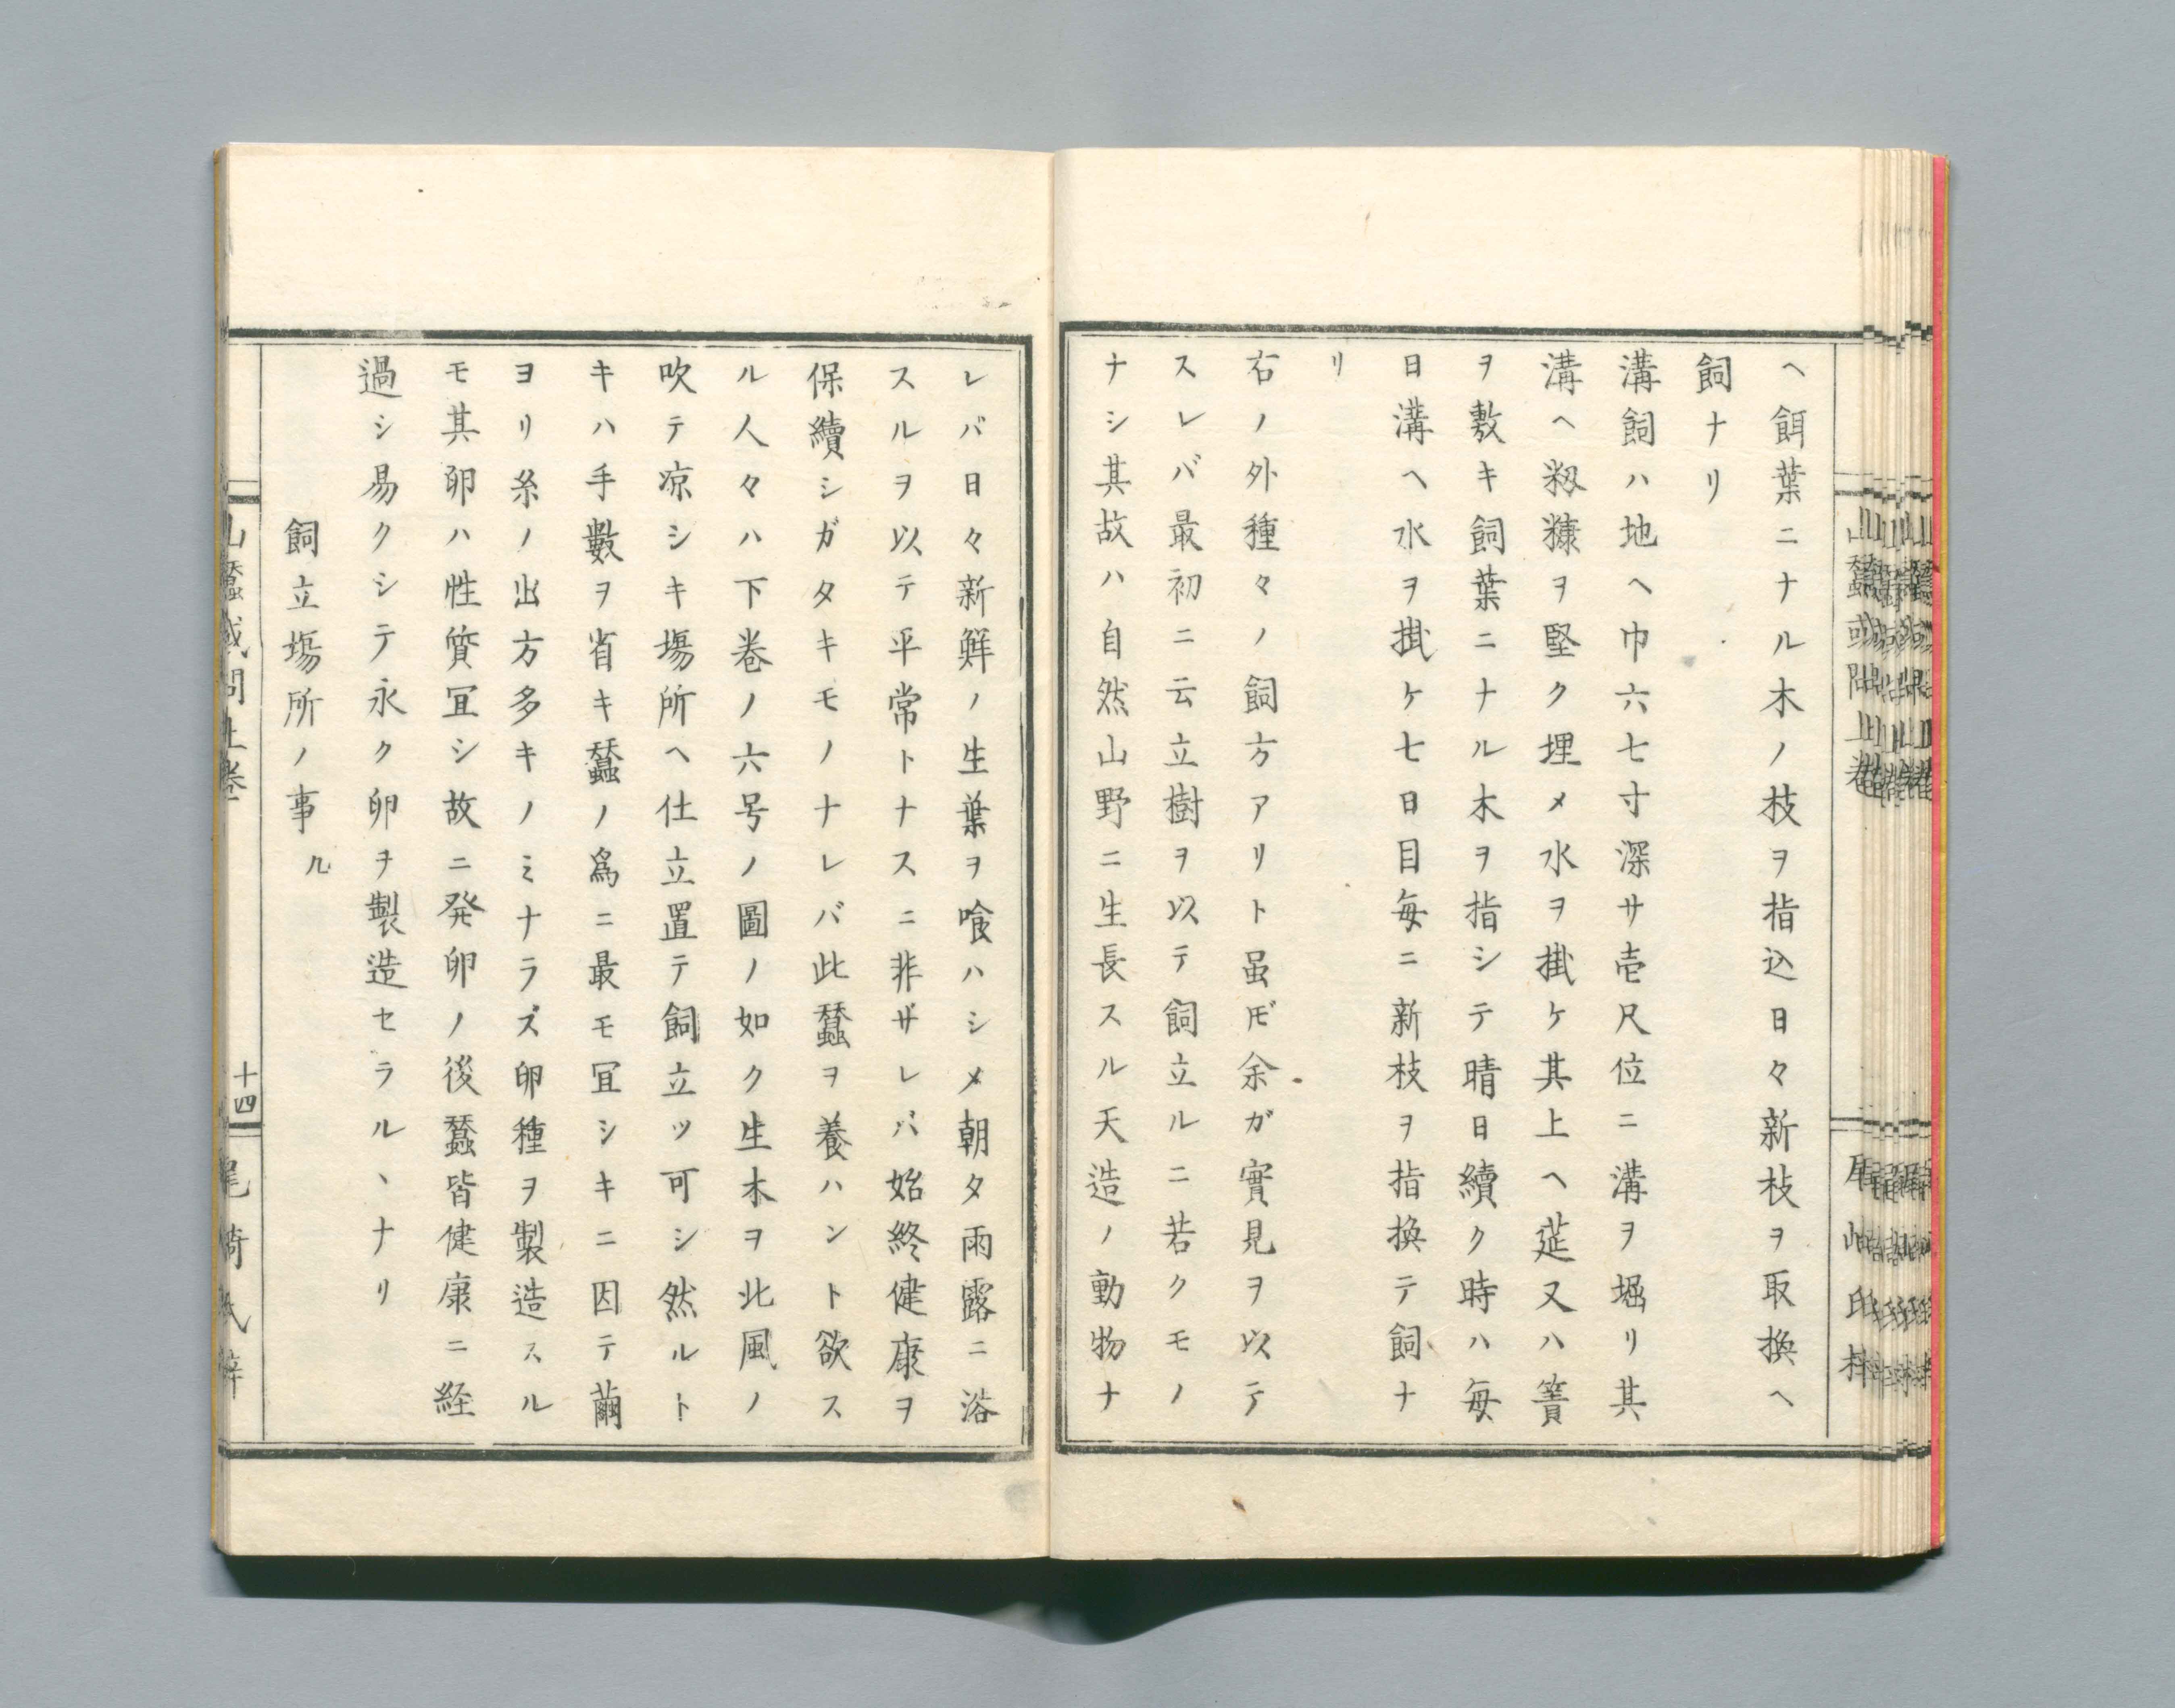 ヘ餌葉ニナル木ノ枝ヲ指込日々新枝ヲ取換ヘ
飼ナリ
溝飼ハ地ヘ巾六七寸深サ壱尺位ニ溝ヲ堀リ其
溝ヘ籾糠ヲ堅ク埋メ水ヲ掛ケ其上ヘ莚又ハ簀
ヲ敷キ飼葉ニナル木ヲ指シテ晴日續ク時ハ毎
日溝ヘ水ヲ掛ケ七日目毎ニ新枝ヲ指換テ飼ナ
リ
右ノ外種々ノ飼方アリト虽𪜈余ガ實見ヲ以テ
スレバ最初ニ云立樹ヲ以テ飼立ルニ若クモノ
ナシ其故ハ自然山野ニ生長スル天造ノ動物ナ
レバ日々新鮮ノ生葉ヲ喰ハシメ朝夕雨露ニ浴
スルヲ以テ平常トナスニ非ザレバ始終健康ヲ
保續シガタキモノナレバ此蠶ヲ養ハント欲ス
ル人々ハ下巻ノ六号ノ圖ノ如ク生木ヲ北風ノ
吹テ凉シキ塲所ヘ仕立置テ飼立ツ可シ然ルト
キハ手數ヲ省キ蠶ノ爲ニ最モ冝シキニ因テ繭
ヨリ糸ノ出方多キノミナラズ卵種ヲ製造スル
モ其卵ハ性質冝シ故ニ発卵ノ後蠶皆健康ニ経
過シ易クシテ永ク卵ヲ製造セラルヽナリ
飼立塲所ノ事ル
山蠶或問上巻 十四